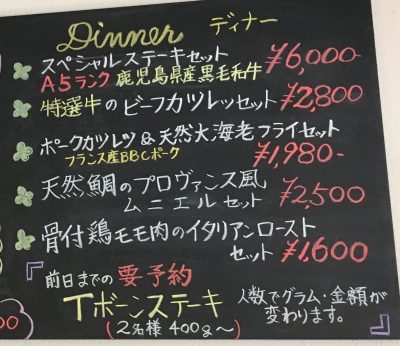 Dinner ディナー
スペシャルステーキセット ¥6,000-
A5ランク 鹿児島県産黒毛和牛
特選牛のビーフカツレッセット ¥2,800
ポークカツレツ&天然大海老フライセット
フランス産BBCポーク ¥1,980-
天然鯛のプロヴァンス風
ムニエルセット ¥2,500
骨付鶏モモ肉のイタリアンロースト
セット ¥1,600
『前日までの要予約
Tボーンステーキ
(2名様400g〜)
人数でグラム・金額が
変わります。
00